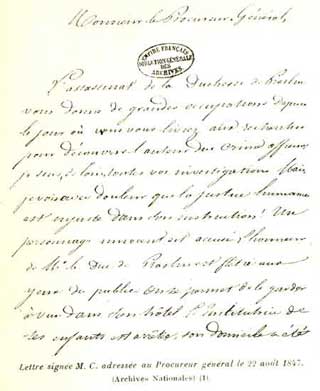 Monsieur le Procureur Général,
EMPIRE FRANÇAIS
DIRECTION GÉNÉRALE
DES
ARCHIVES
L'assassinat de la Duchesse de Praslin
vous donne de grandes occupations depuis
le jour où vous vous livrez aux recherches
pour découvrir l'auteur du crime affreux
je sais toutes vos investigations Mais
je vois avec douleur que la justice humaine
est dans son instruction! Un
personnage innocent est accusé l'honneur
de Mr le Duc de Praslin est flétri aux
yeux du public On se permet de le garder
à vue dans son hôtel l'Institutrice de
ses enfants est arrêtée, son domicile a été
Lettre signée M. C. adressée au Procureur général le 22 août 1847.
(Archives Nationales) (1).